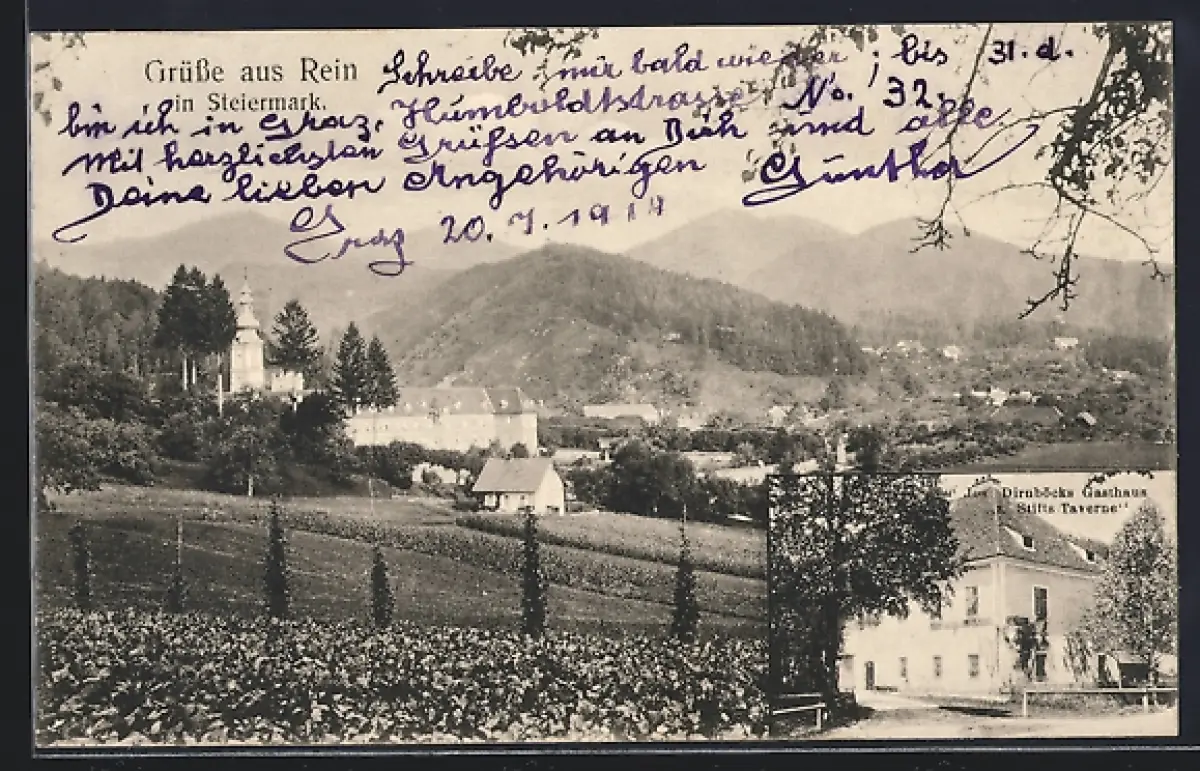 Grüße aus Rein
in Steiermark.
Schreibe mir bald wieder; bis 31. d.
bin ich in Graz, Humboldtstrasse No. 32.
Mit herzlichsten Grüssen an Dich und alle
Deine lieben Angehörigen Günther
Graz 20. 7. 1914
Jos. Dirnböcks Gasthaus
z. Stifts Taverne“